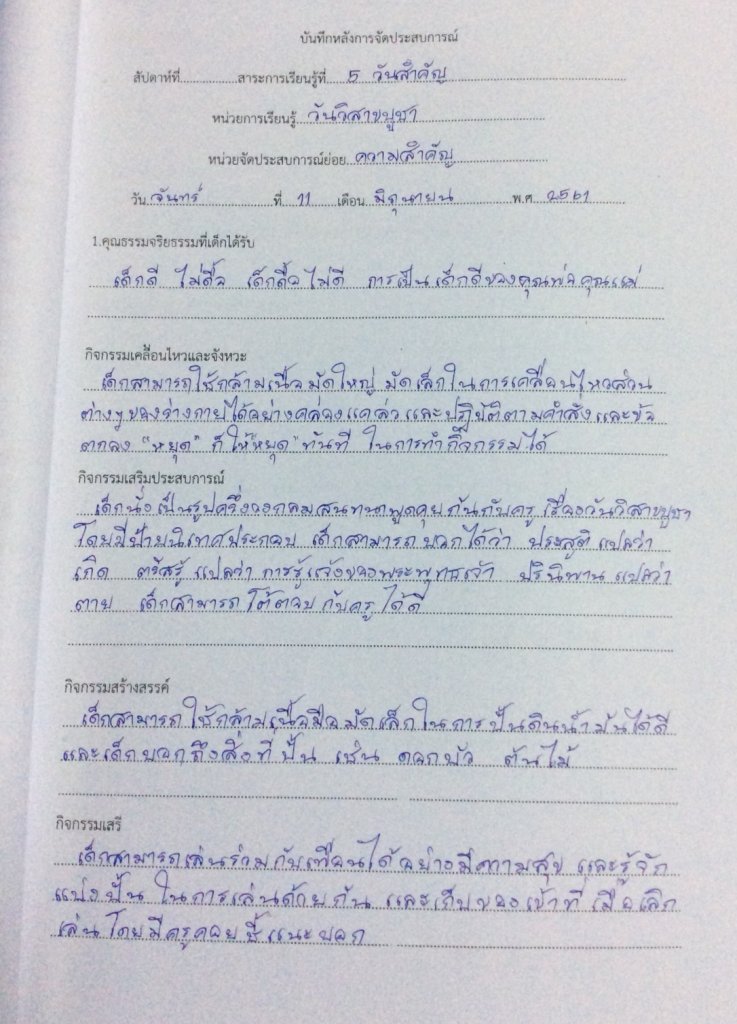 บันทึกหลังการจัดประสบการณ์
สัปดาห์ที่ สาระการเรียนรู้ที่ 5 วันสำคัญ
หน่วยการเรียนรู้ วันวิสาขบูชา
หน่วยจัดประสบการณ์ย่อย ความสำคัญ
วัน จันทร์ ที่ 11 เดือน มิถุนายน พ.ศ 2561
1.คุณธรรมจริยธรรมที่เด็กได้รับ
เด็กดี ไม่ดื้อ เด็กดื้อไม่ดี การเป็นเด็กดีของคุณพ่อคุณแม่
กิจกรรมเคลื่อนไหวและจังหวะ
เด็กสามารถใช้กล้ามเนื้อมัดใหญ่ มัดเล็กในการเคลื่อนไหวส่วน
ต่างๆของร่างกายได้อย่างคล่องแคล่ว และปฏิบัติตามคำสั่งและข้อ
ตกลง "หยุด" ก็ให้"หยุด"ทันที ในการทำกิจกรรมได้
กิจกรรมเสริมประสบการณ์
เด็กนั่งเป็นรูปครึ่งวงกลมสนทนาพูดคุยกันกับครู เรื่องวันวิสาขบูชา
โดยมีป้ายนิเทศประกอบ เด็กสามารถบอกได้ว่า ประสูติ แปลว่า
เกิด ตรัสรู้ แปลว่า การรู้แจ้งของพระพุทธเจ้า ปรินิพาน แปลว่า
ตาย เด็กสามารถโต้ตอบกับครูได้ดี
กิจกรรมสร้างสรรค์
เด็กสามารถใช้กล้ามเนื้อมือมัดเล็กในการปั้นดินน้ำมันได้ดี
และเด็กบอกถึงสิ่งที่ปั้น เช่น ดอกบัว ต้นไม้
กิจกรรมเสรี
เด็กสามารถเล่นร่วมกับเพื่อนได้อย่างมีความสุข และรู้จัก
แบ่งปัน ในการเล่นด้วยกัน และเก็บของเข้าที่ เมื่อเลิก
เล่นโดยมีครูคอยชี้แนะบอก